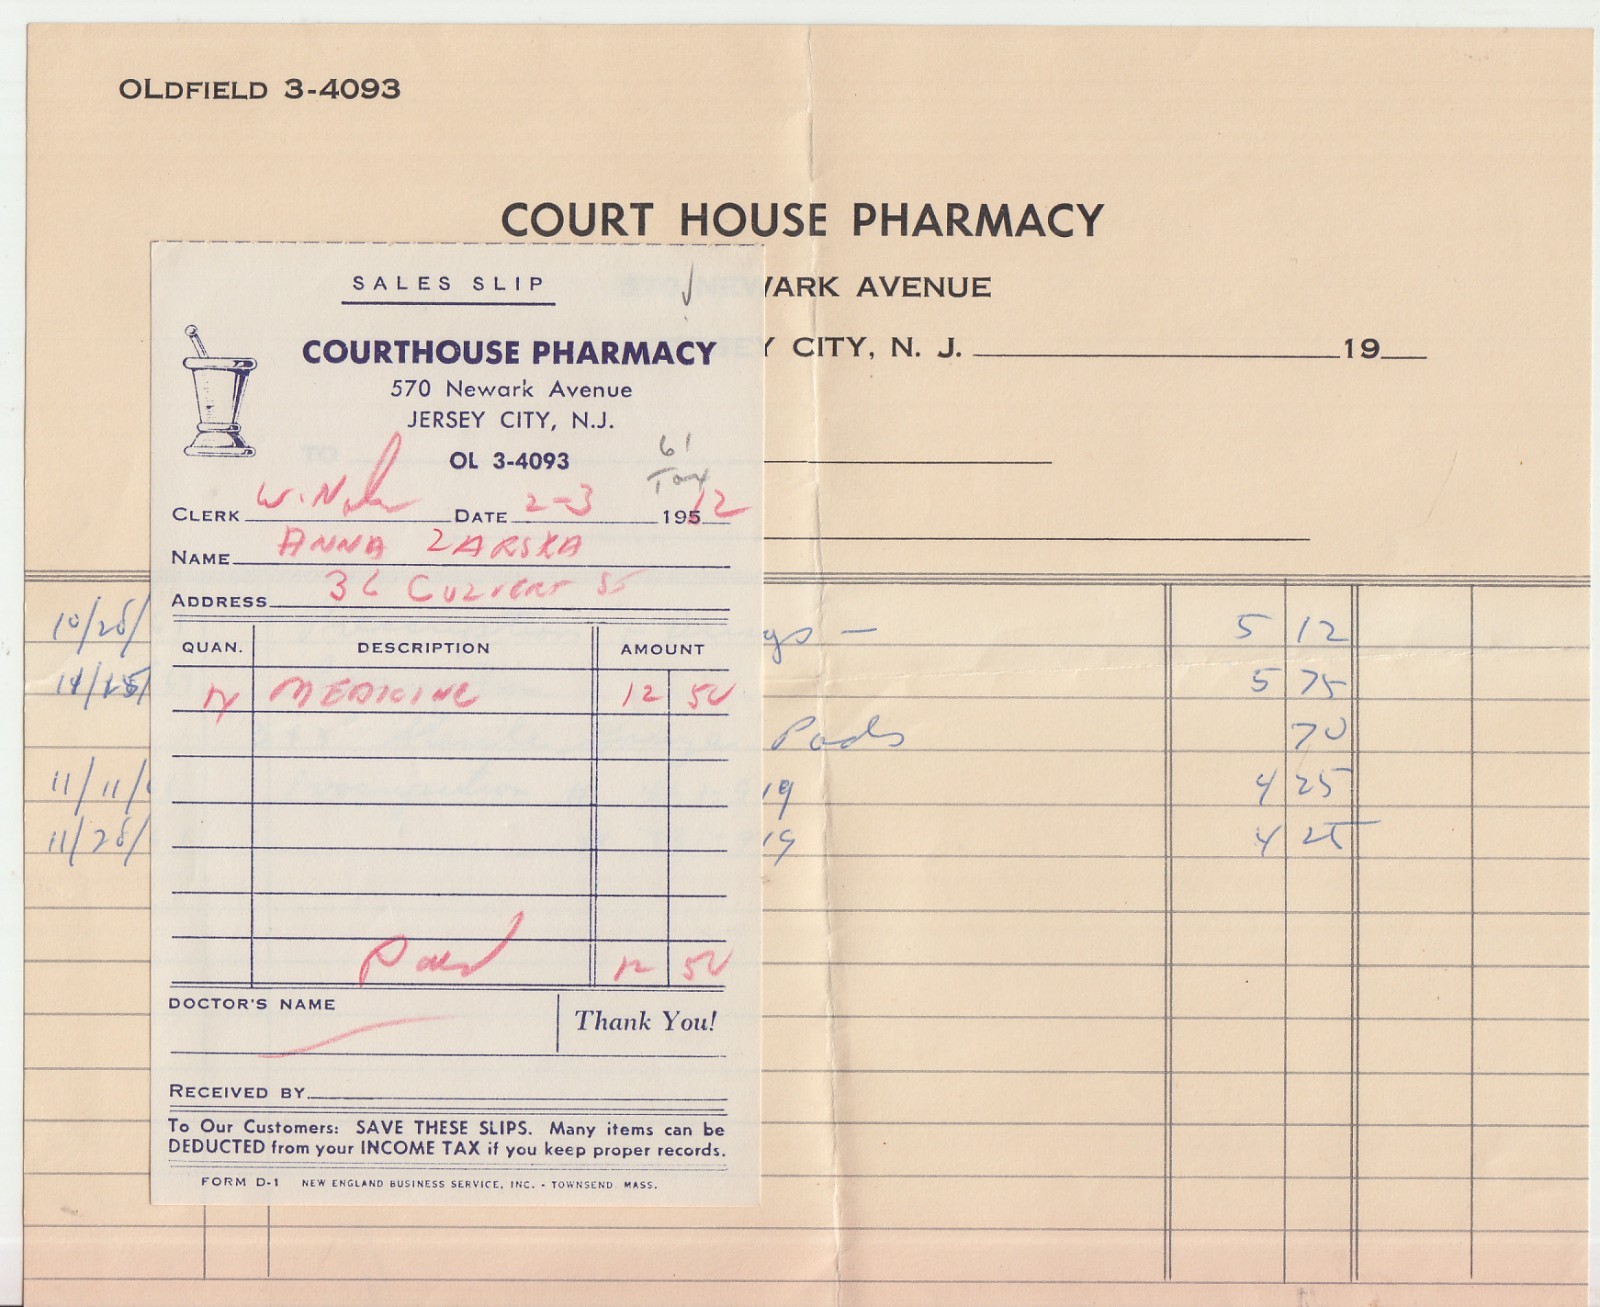 OLDFIELD 3-4093
COURT HOUSE PHARMACY
ARK AVENUE
CITY, N. J. 19
SALES SLIP
COURTHOUSE PHARMACY
570 Newark Avenue
JERSEY CITY, N.J.
OL 3-4093
61
Tax
CLERK DATE 2-3 195
NAME ANNA ZARSKA
ADDRESS 36
QUAN. DESCRIPTION AMOUNT
MEDICINE 12 50
Paid 12 50
DOCTOR'S NAME
Thank You!
RECEIVED BY
To Our Customers: SAVE THESE SLIPS. Many items can be
DEDUCTED from your INCOME TAX if you keep proper records.
FORM D-1 NEW ENGLAND BUSINESS SERVICE, INC. - TOWNSEND MASS.
10/28/ 5 12
5 75
Pads 70
11/11/ 19 4 25
11/28/ 19 4 25